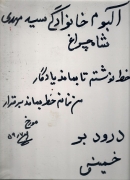 آلبوم خانوادگی سید مهدی
شاهچراغ
خط نوشته تا بماند یادگار
من نمانم خط بماند برقرار
مورخ
درود بر
خمینی